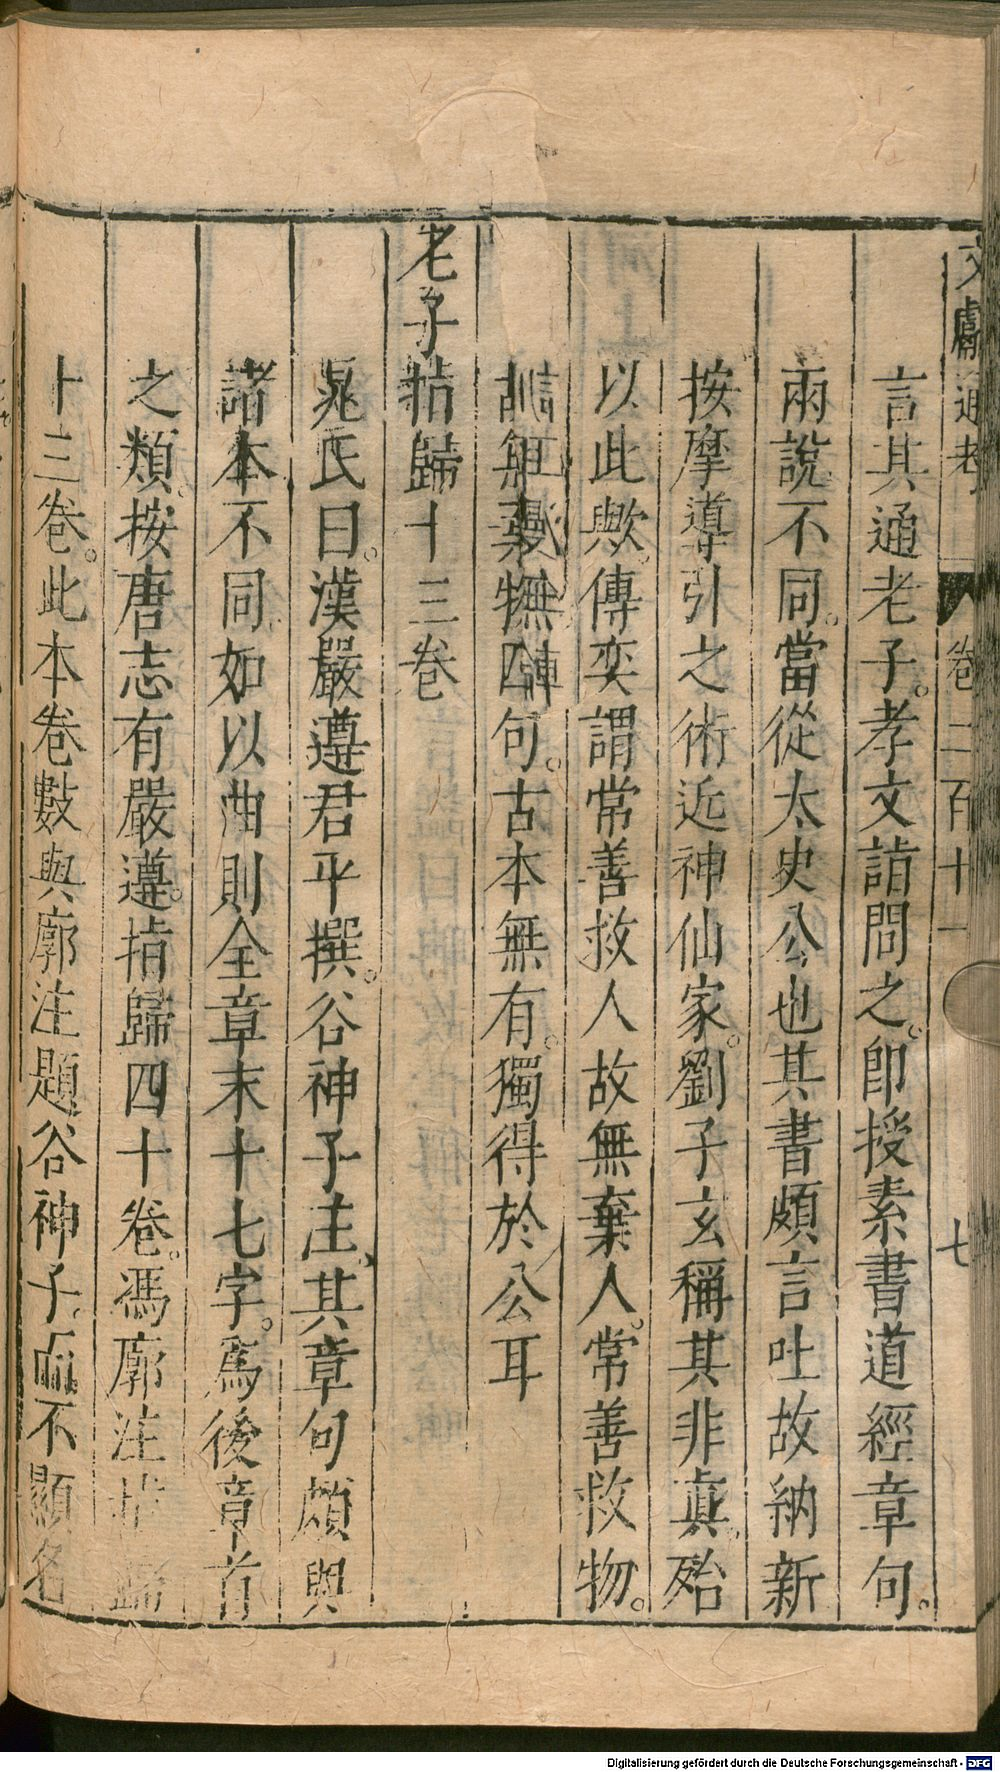 文獻通考 卷二百十一 七
言其通老子。孝文詣問之。卽授素書道經章句。
兩說不同。當從太史公也其書頗言吐故納新
按摩導引之術近神仙家。劉子玄稱其非眞。殆
以此歟。傳奕謂常善救人故無棄人。常善救物。
無棄物四句。古本無有。獨得於公耳
老子指歸十三卷
晁氏曰。漢嚴遵君平撰。谷神子注、其章句頗與
諸本不同。如以曲則全章末十七字。爲後章首
之類。按唐志有嚴遵。指歸四十卷。馮廓注指歸
十三卷。此本卷數與廓注題谷神子。而不顯名
Digitalisierung gefördert durch die Deutsche Forschungsgemeinschaft - DFG